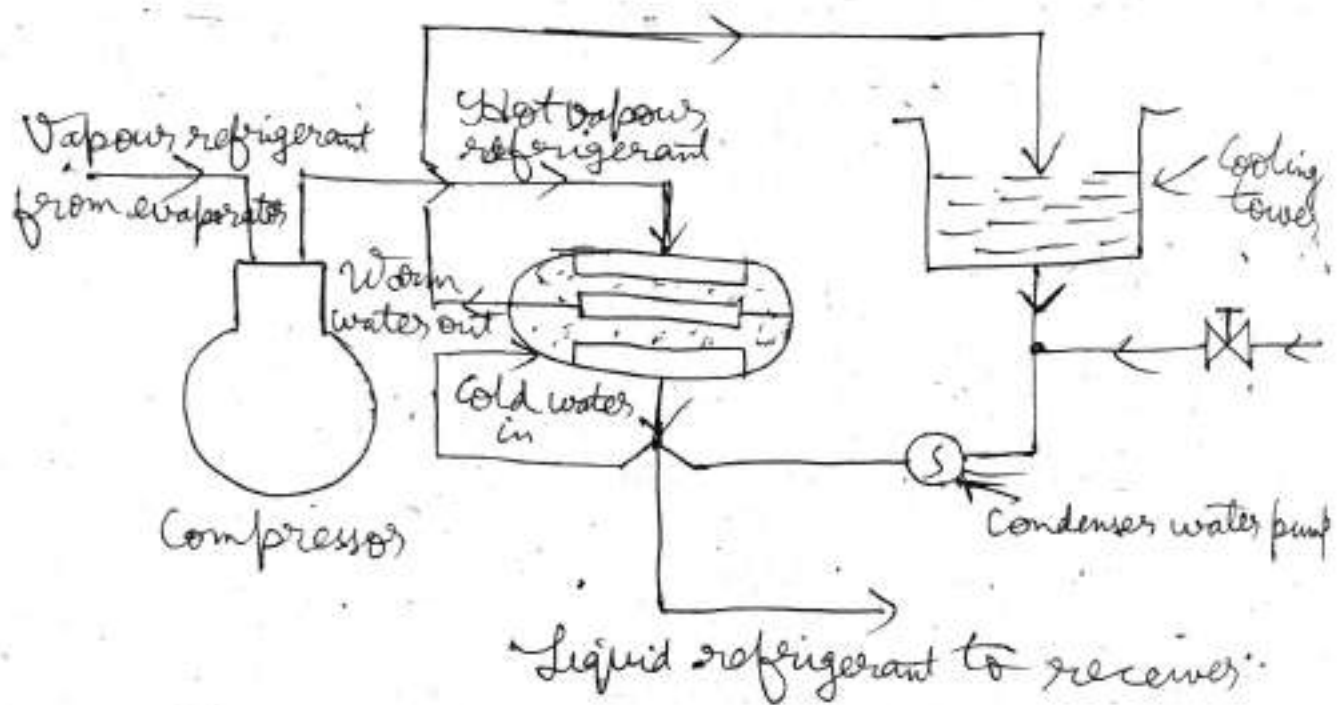 Vapour refrigerant
from evaporator
Hot vapour
refrigerant
Cooling
tower
Warm
water out
Cold water
in
S
Compressor
Condenser water pump
Liquid refrigerant to receiver.